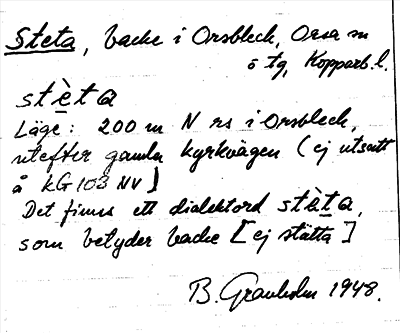 Steta, backe i Orsbleck, Orsa sn
ö tg, Kopparb. l.
stèta
Läge: 200 m N rs i Orsbleck,
utefter gamla kyrkvägen (ej utsatt
å kG 103 NV)
Det finns ett dialektord stèta,
som betyder backe [ej stätta]
B. Granholm 1948.